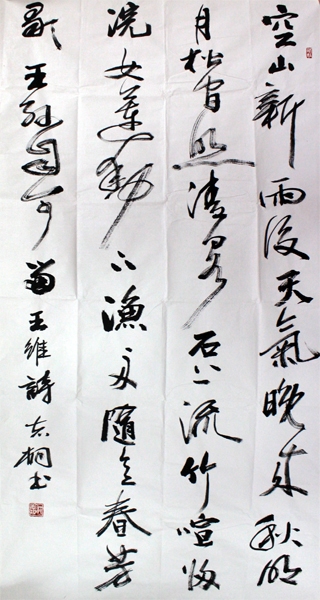 空山新雨後天氣晚來秋明
月松間照清泉石上流竹喧歸
浣女蓮動下漁舟隨意春芳
歇王孫自可留王維詩